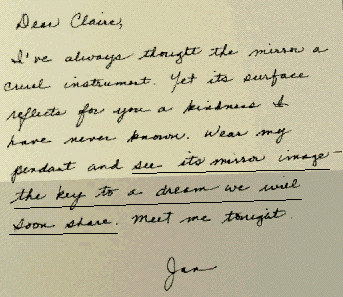 Dear Claire,
I've always thought the mirror a
cruel instrument. Yet its surface
reflects for you a kindness I
have never known. Wear my
pendant and see its mirror image -
the key to a dream we will
soon share. Meet me tonight.
Jan